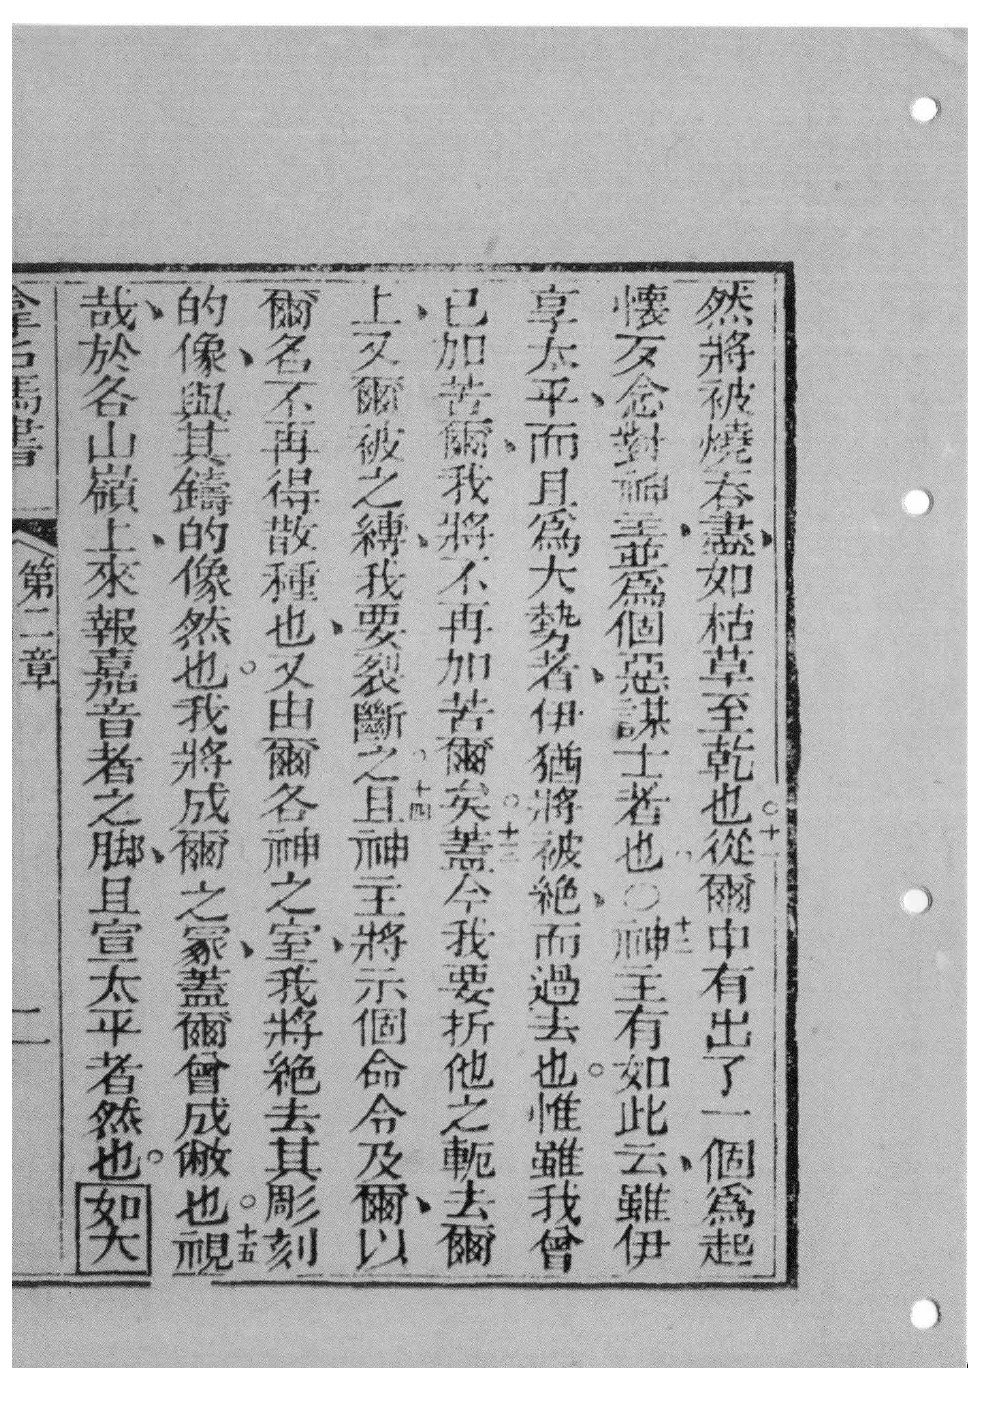 然將被燒吞盡、如枯草至乾也。十一從爾中有出了一個爲起
懷歹念對神主、並爲個惡謀士者也。○十二神主有如此云、雖伊
享太平、而且爲大勢者、伊猶將被絕、而過去也。惟雖我曾
已加苦爾、我將不再加苦爾矣。十三蓋今我要折他之軛去爾
上、又爾被之縛、我要裂斷之。十四且神主將示個命令及爾、以
爾名不再得散種也、又由爾各神之室、我將絕去其彫刻
的像、與其鑄的像然也。我將成爾之冢、蓋爾曾成敝也。十五視
哉、於各山嶺上、來報嘉音者之脚、且宣太平者然也。如大
拿戸馬書 第二章 二